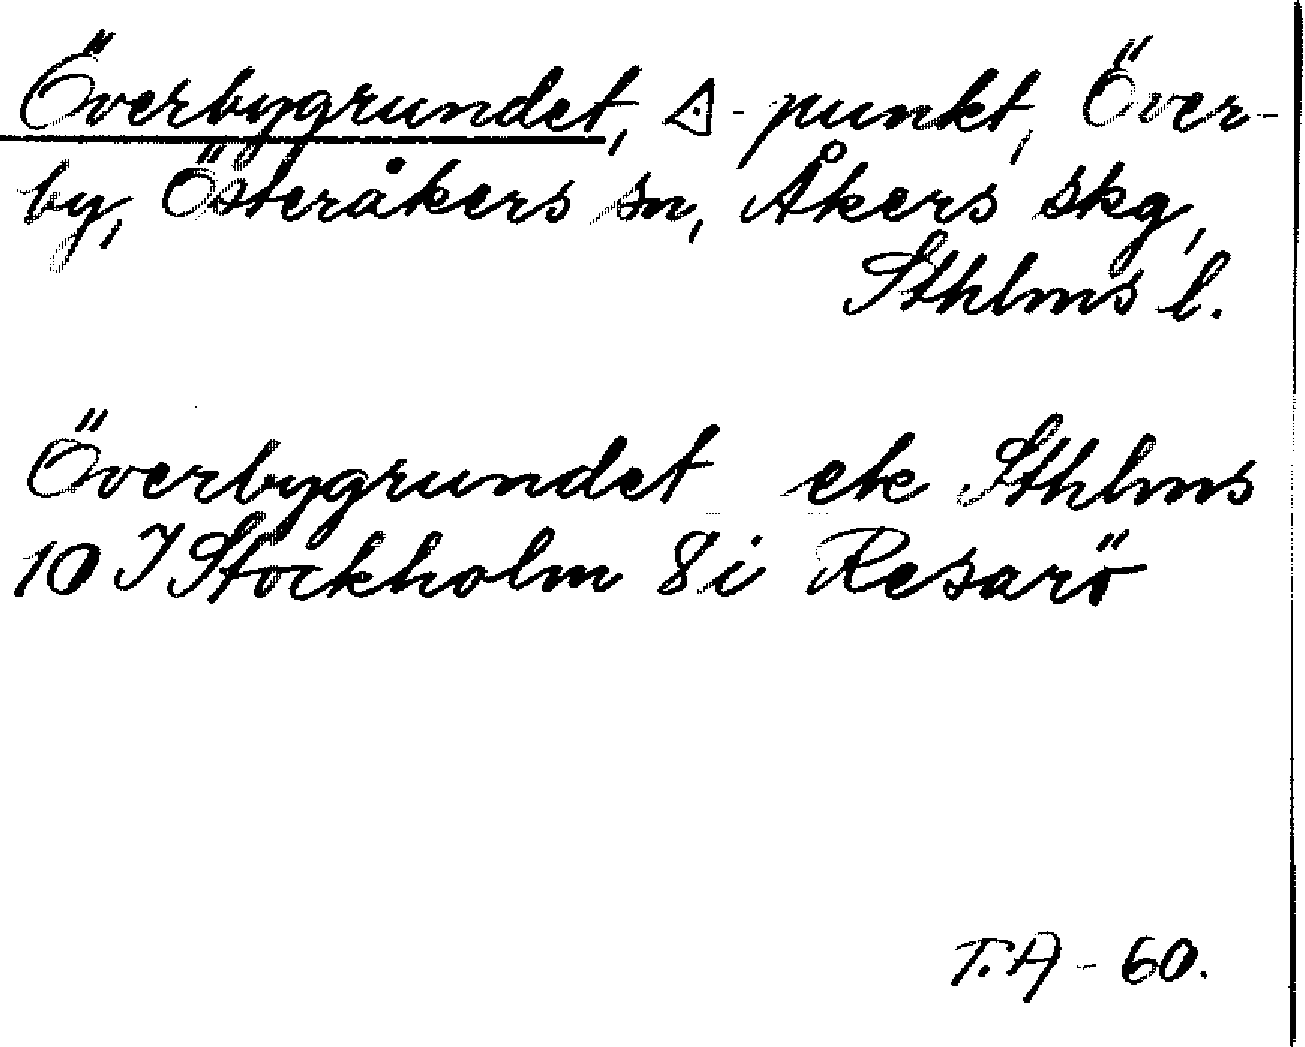 Överbygrundet, △-punkt, Över-
by, Österåkers sn, Åkers skg,
Sthlms l.
Överbygrundet ek Sthlms
10 I Stockholm 8 i Resarö
T.A - 60.